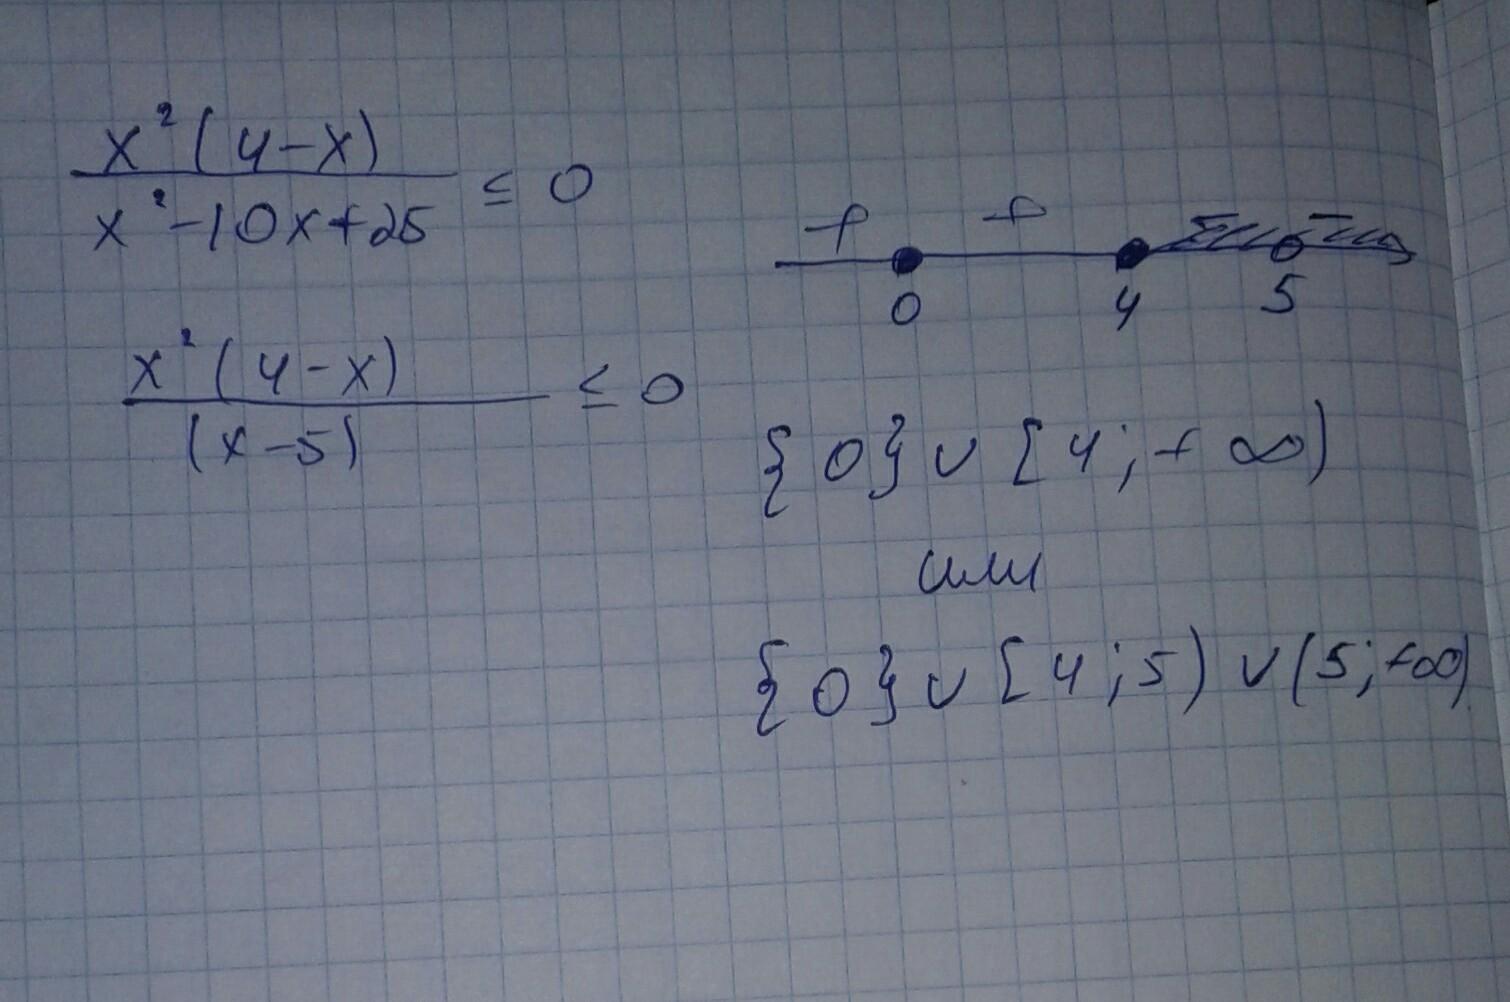 x²(4-x)
x²-10x+25 ≤ 0
x²(4-x)
(x-5) ≤ 0
+ + - -
0 4 5
{0} ∪ [4; +∞)
или
{0} ∪ [4; 5) ∪ (5; +∞)